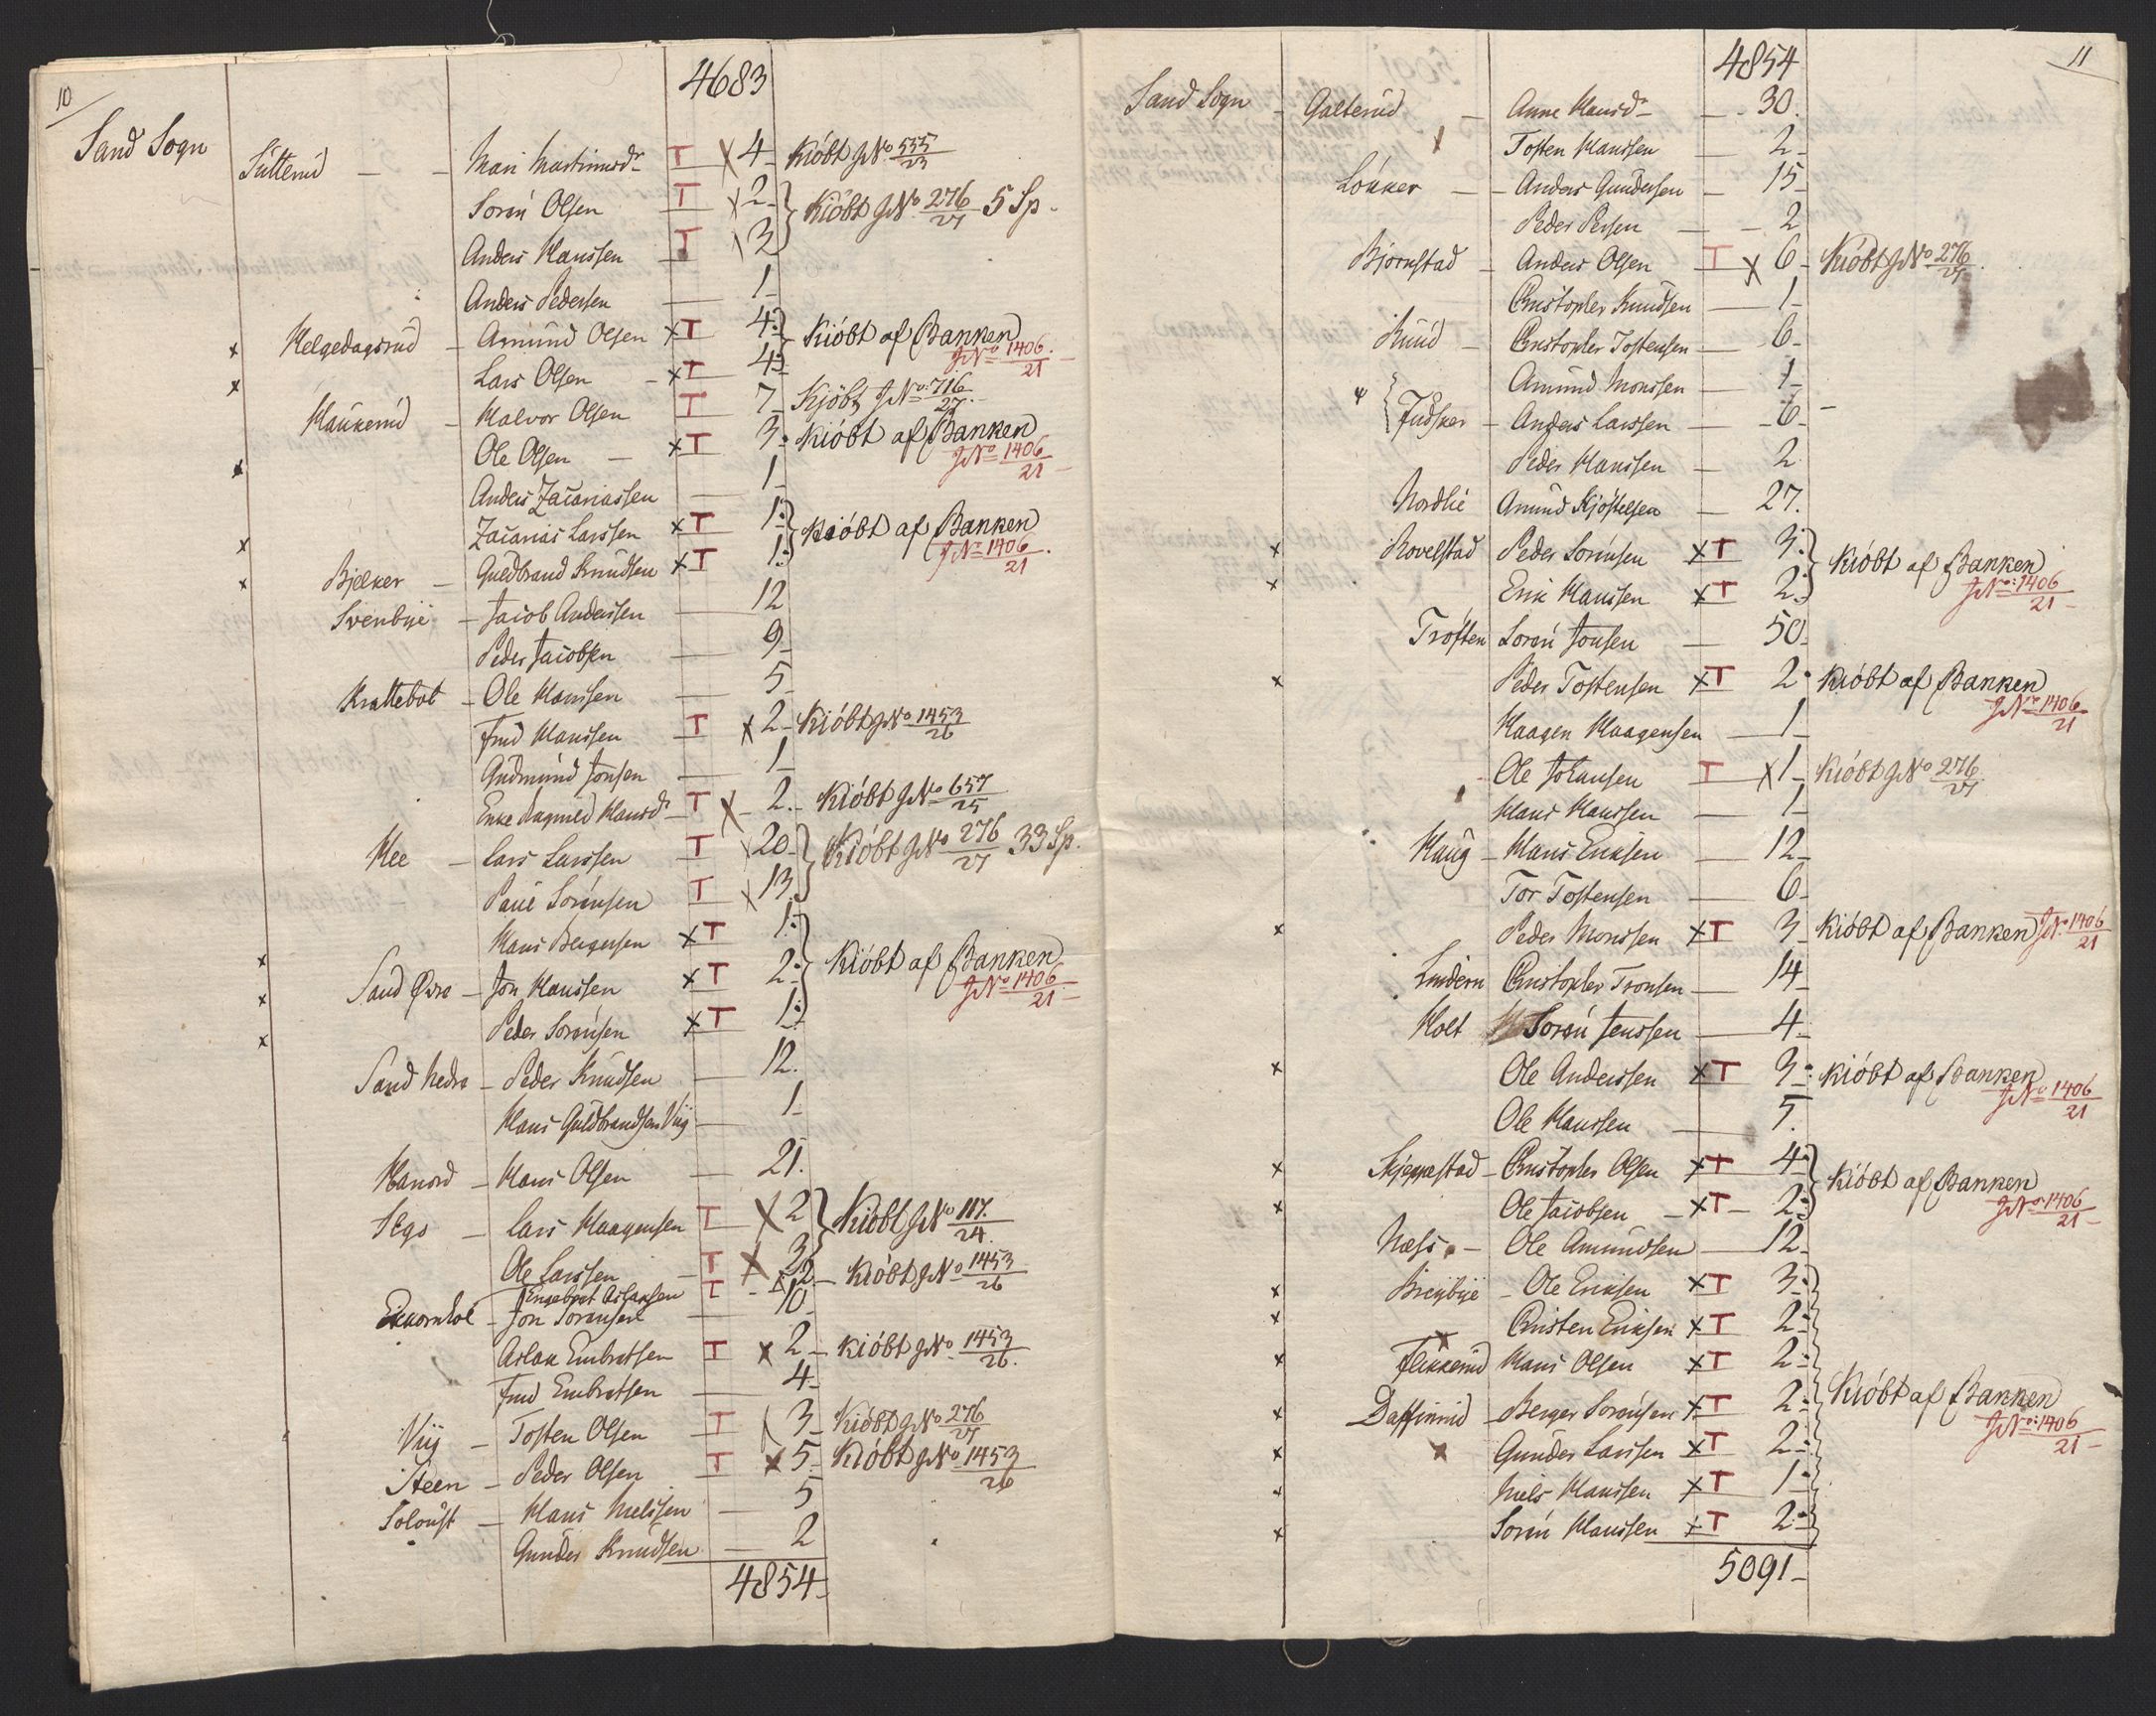 10
4683
Sand Sogn Sütterud — Mari Martinusdr T x 4 Kióbt JNo 555/23
Sorén Olsen T x 2 } Kióbt JNo 276/27 5 Sp.
Anders Hanssen T x 3
Anders Pedersen — 1
x Helgedagsrud — Amünd Olsen xT 4 } Kióbt af Banken JNo 1406/21
x Lars Olsen — xT 4
Haukerud — Halvor Olsen T 7 Kjóbt JNo 716/27
x Ole Olsen — xT 3 Kióbt af Banken JNo 1406/21
Anders Zacariassen — 1
x Zacarias Larssen xT 1 } Kióbt af Banken JNo 1406/21
x Bjelker — Guldbrand Knudsen xT 1
Svenbye — Jacob Anderssen — 12
Peder Jacobsen — 9
Krattebøl — Ole Hanssen — 5
Frid Hanssen T x 2 Kióbt JNo 1453/26
Gudmünd Jonsen — 1
Enke Ragnild Hansdr T x 2 Kióbt JNo 657/25
Hee — Lars Larssen T x 20 } Kióbt JNo 276/27 33 Sp.
Paul Sorénsen T x 13
x Hans Bergersen xT 1 } Kióbt af Banken JNo 1406/21
x Sand Øvre — Jon Hanssen xT 2
x Peder Sorensen xT 1
Sand Nedre — Peder Knudsen — 12
Hans Guldbrandsen Viig — 1
Hanord — Hans Olsen — 21
Hans Haagensen
Lars Haagensen T x 2 } Kióbt JNo 117/24
Ole Larssen T x 3
Engebret Aslaksen T x 2 Kióbt JNo 1453/26
Ekkornhol — Jon Sorensen — 10
Aslak Embretsen T x 2 Kióbt JNo 1453/26
Frid Embretsen — 4
Viig — Tosten Olsen T 3 Kióbt JNo 276/27
Steen — Peder Olsen T x 5 Kióbt JNo 1453/26
Hans Nielssen — 5
Gunder Knudsen — 2
4854
11
4854
Sand Sogn — Galterud — Anne Hansdr — 30
Tosten Hanssen — 2
Lókker — Anders Gundersen — 15
Peder Persen — 2
Bjornstad — Anders Olsen T x 6 Kióbt JNo 276/27
Christopher Knudsen — 1
Ruud — Christopher Tostensen — 6
Amünd Monssen — 1
Anders Larssen — 6
Peder Hanssen — 2
Nordlie Amünd Kjóstelsen — 27
x Rovelstad Peder Sorensen xT 3 } Kióbt af Banken JNo 1406/21
x Erik Hanssen xT 2
Trósten Sorén Jonsen — 50
x Peder Tostensen xT 2 Kióbt af Banken JNo 1406/21
Haagen Haagensen — 1
Ole Johansen T x 1 Kióbt JNo 276/27
Hans Hanssen — 1
Haug — Hans Eriksen — 12
Tor Tostensen — 6
x Peder Monssen xT 3 Kióbt af Banken JNo 1406/21
Lindern Christopher Tronsen — 14
Holt Sorén Jenssen — 4
x Ole Anderssen xT 3 Kióbt af Banken JNo 1406/21
Ole Hanssen — 5
x Skjeppestad — Christopher Olsen xT 4 } Kióbt af Banken JNo 1406/21
x Ole Jacobsen — xT 2
Næss — Ole Amundsen — 12
x Bregbye — Ole Eriksen xT 3
x Christen Eriksen xT 2
x Flikkerud Hans Olsen xT 2
x Daffinrud Berger Sorénsen xT 2 } Kióbt af Banken JNo 1406/21
x Gunder Larssen xT 2
x Niels Hanssen xT 1
x Sorén Hanssen xT 2
5091